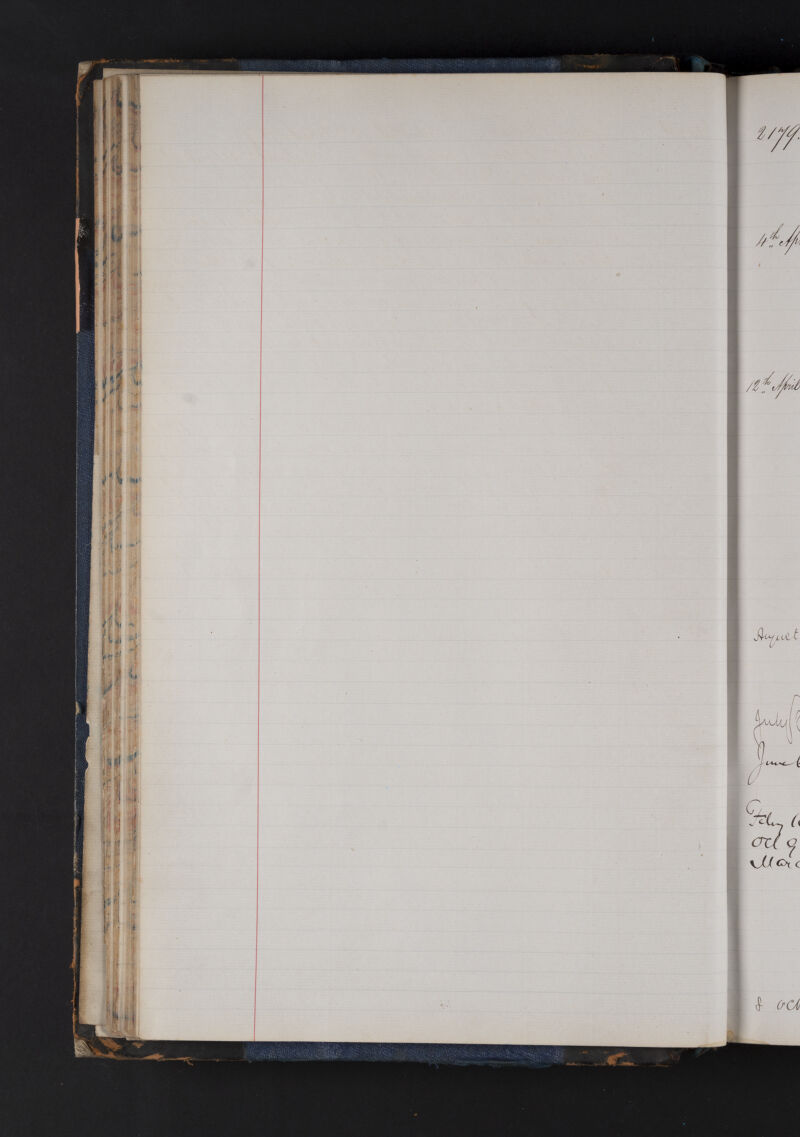 2179.
4th Ap
12th April
August
July
June 6
Feby 10
Oct 9
Marc
8 Oct